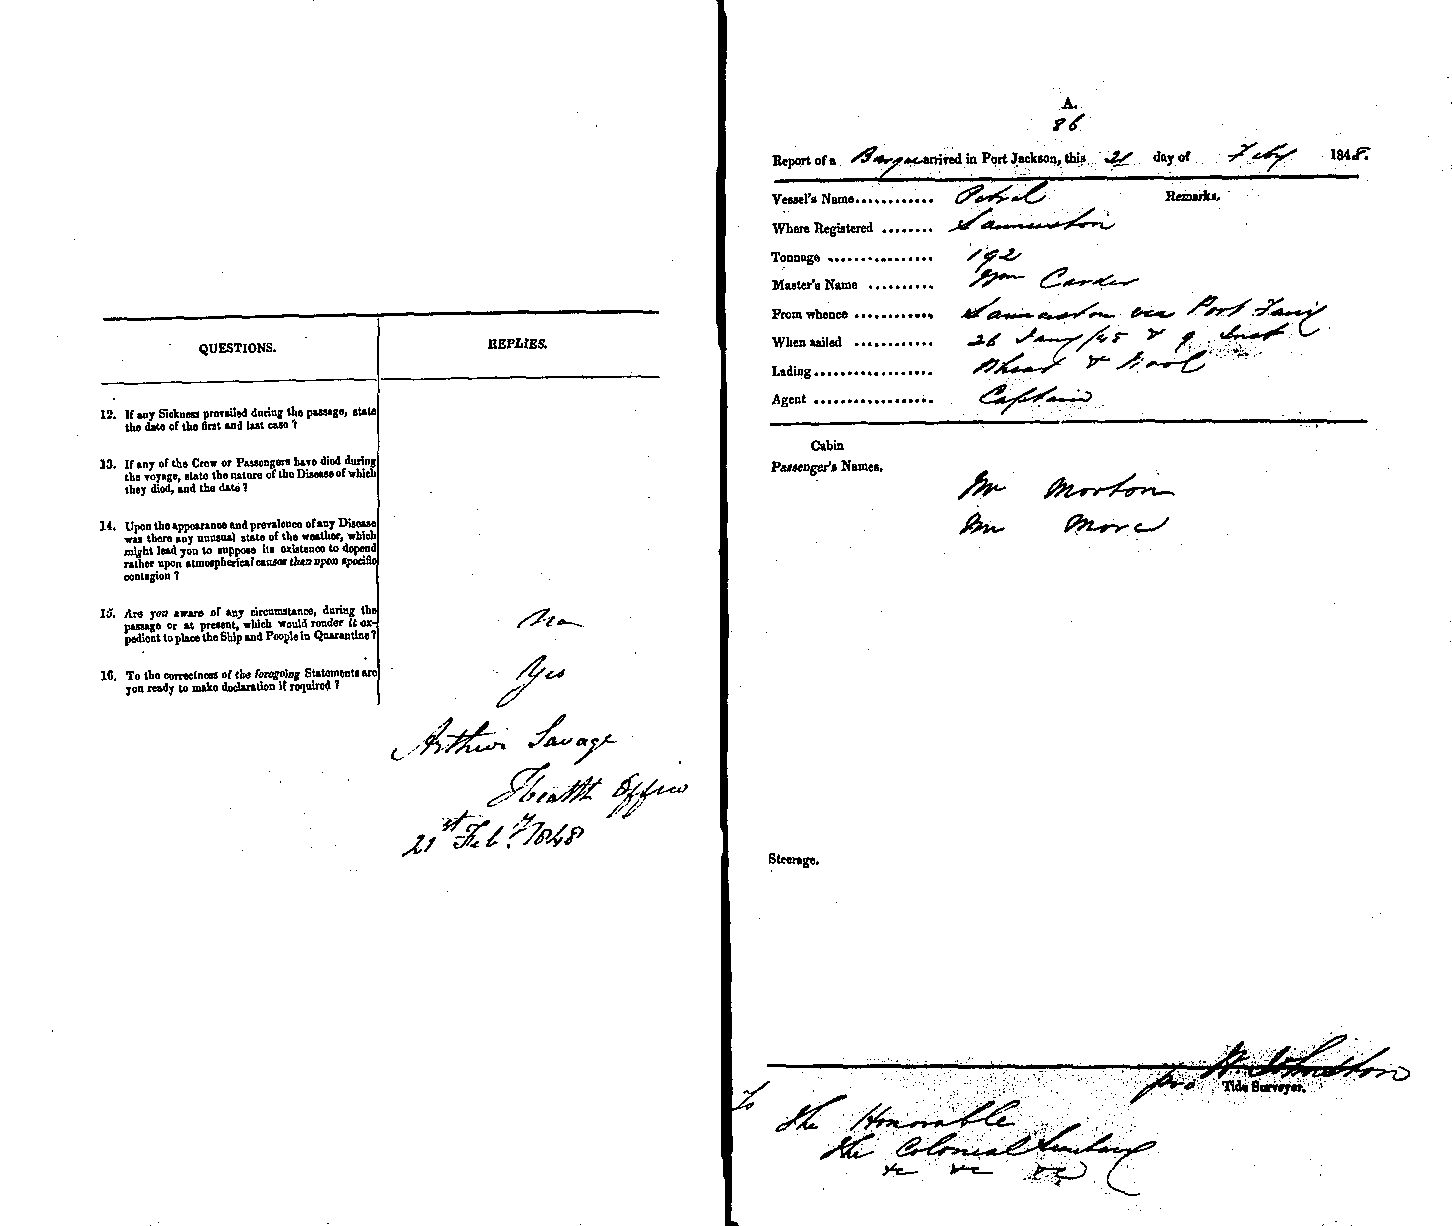 QUESTIONS.
REPLIES.
12. If any Sickness prevailed during the passage, state
the date of the first and last case ?
13. If any of the Crew or Passengers have died during
the voyage, state the nature of the Disease of which
they died, and the date ?
14. Upon the appearance and prevalence of any Disease
was there any unusual state of the weather, which
might lead you to suppose its existence to depend
rather upon atmospherical causes than upon specific
contagion ?
15. Are you aware of any circumstance, during the
passage or at present, which would render it ex-
pedient to place the Ship and People in Quarantine ?
No
16. To the correctness of the foregoing Statements are
you ready to make declaration if required ?
Yes
Arthur Savage
Health Officer
21st Feby. 1848
A.
86
Report of a Barque arrived in Port Jackson, this 21 day of Feby 1848.
Vessel's Name............ Petrel
Remarks.
Where Registered ........ Launceston
Tonnage ................ 192
Master's Name .......... Wm Carder
From whence ............ Launceston via Port Fairy
When sailed ........... 26 Jany /48 & 9 Inst
Lading.................. Wheat & Wool
Agent .................. Captain
Cabin
Passenger's Names.
Mr Morton
Mr More
Steerage.
pro H. Johnston
Tide Surveyor.
To
The Honorable
The Colonial Secretary
&c &c &c